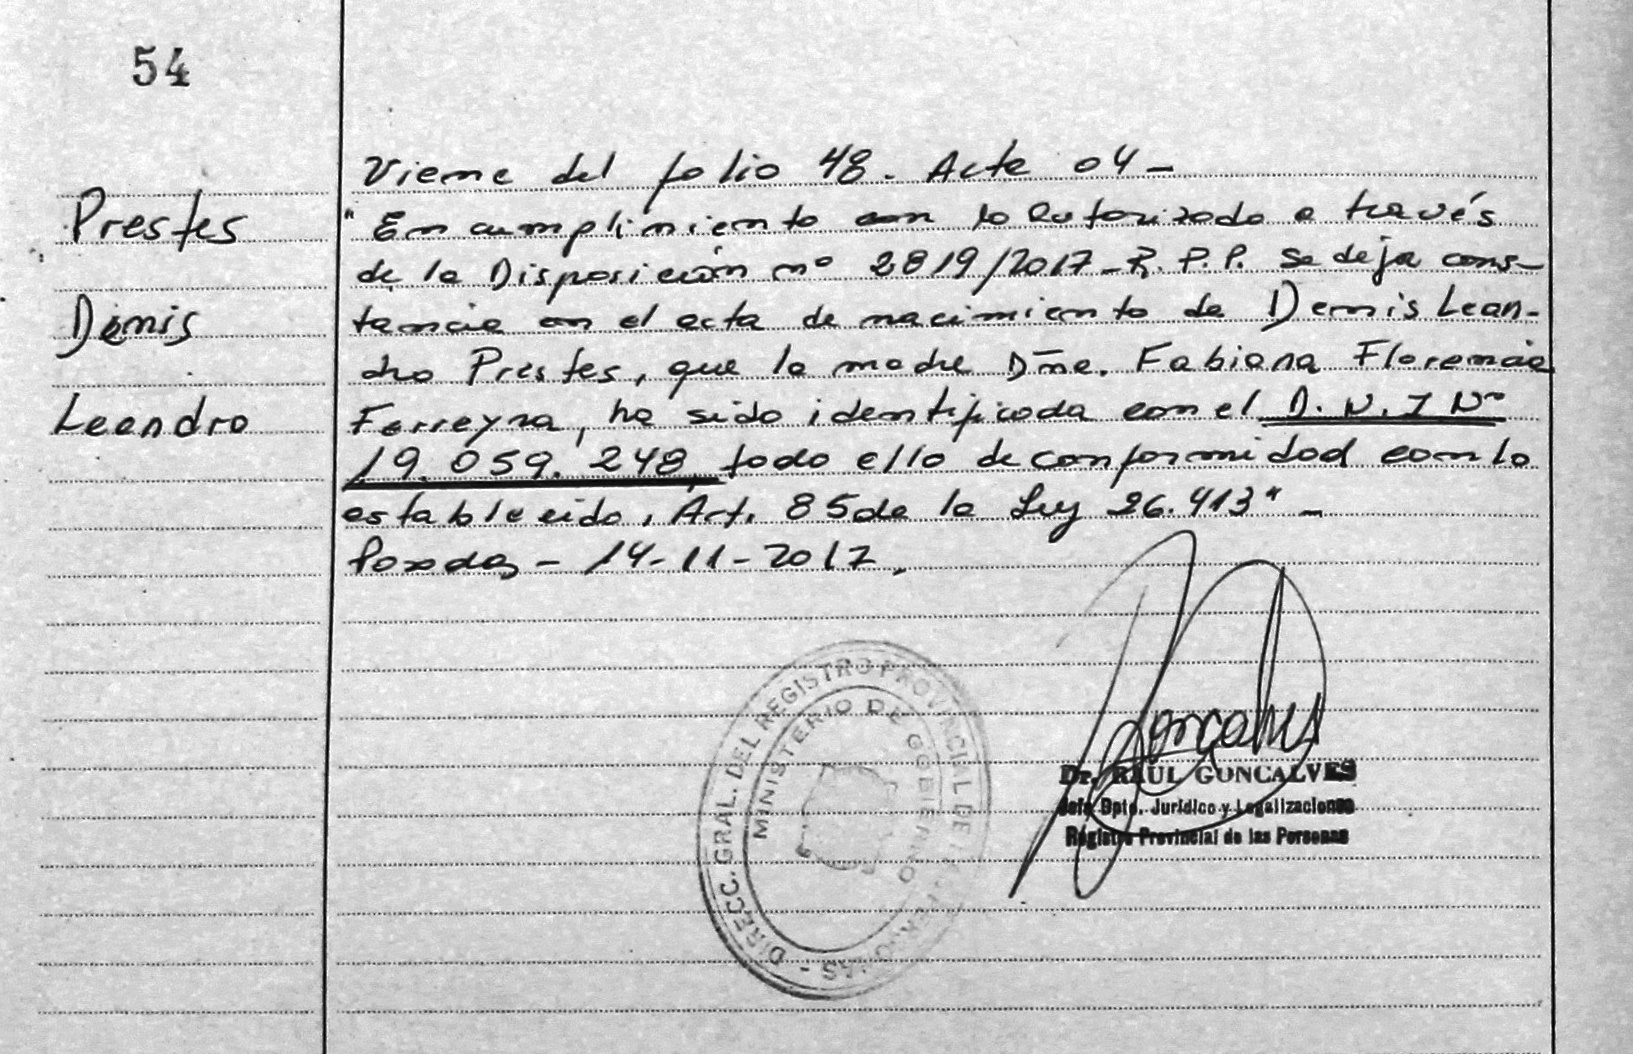 54
Viene del folio 48. Acta 04-
Prestes
Denis
Leandro
"En cumplimiento con lo autorizado a través
de la Disposición nº 2819/2017-R.P.P. se deja cons-
tancia en el acta de nacimiento de Denis Lean-
dro Prestes, que la madre Dña. Fabiana Florencia
Ferreyra, ha sido identificada con el D.N.I Nº
19.059.248, todo ello de conformidad con lo
establecido, Art. 85 de la Ley 26.413" -
Posadas - 14-11-2017.
Goncalves
Dr. RAUL GONCALVES
Jefe Dpto. Jurídico y Legalizaciones
Registro Provincial de las Personas
DIRECC. GRAL. DEL REGISTRO PROVINCIAL DE LAS PERSONAS -
MINISTERIO DE GOBIERNO